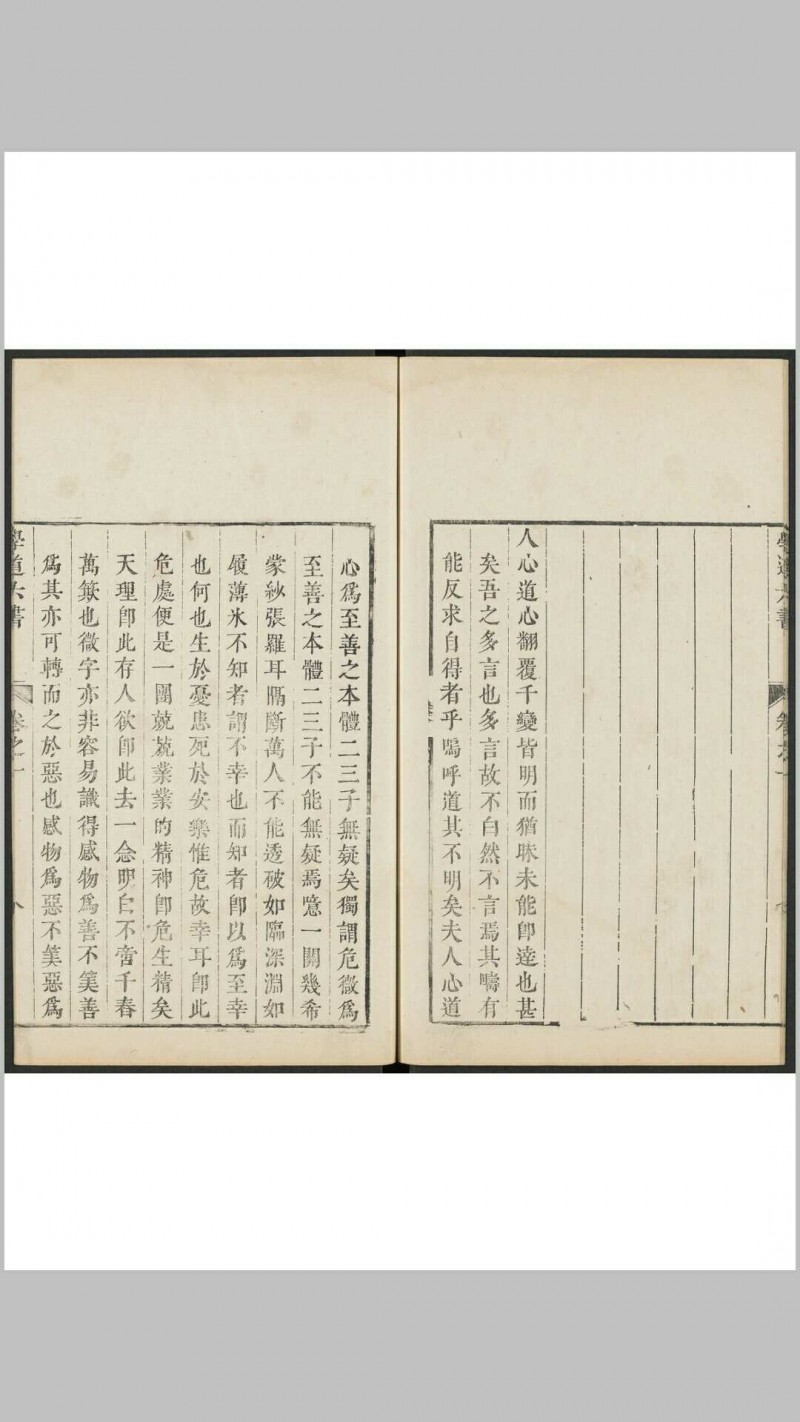 學道六書
卷之一
人心道心翻覆千變皆明而猶昧未能卽達也甚
矣吾之多言也多言故不自然不言焉其疇有
能反求自得者乎嗚呼道其不明矣夫人心道
心爲至善之本體二三子無疑矣獨謂危微爲
至善之本體二三子不能無疑焉噫一關幾希
蒙紗張羅耳隔斷萬人不能透破如臨深淵如
履薄氷不知者謂不幸也而知者卽以爲至幸
也何也生於憂患死於安樂惟危故幸耳卽此
危處便是一團兢兢業業的精神卽危生精矣
天理卽此存人欲卽此去一念明白不啻千春
萬籁也微字亦非容易識得感物爲善不筭善
爲其亦可轉而之於惡也感物爲惡不筭惡爲
學道六書
卷之一
八